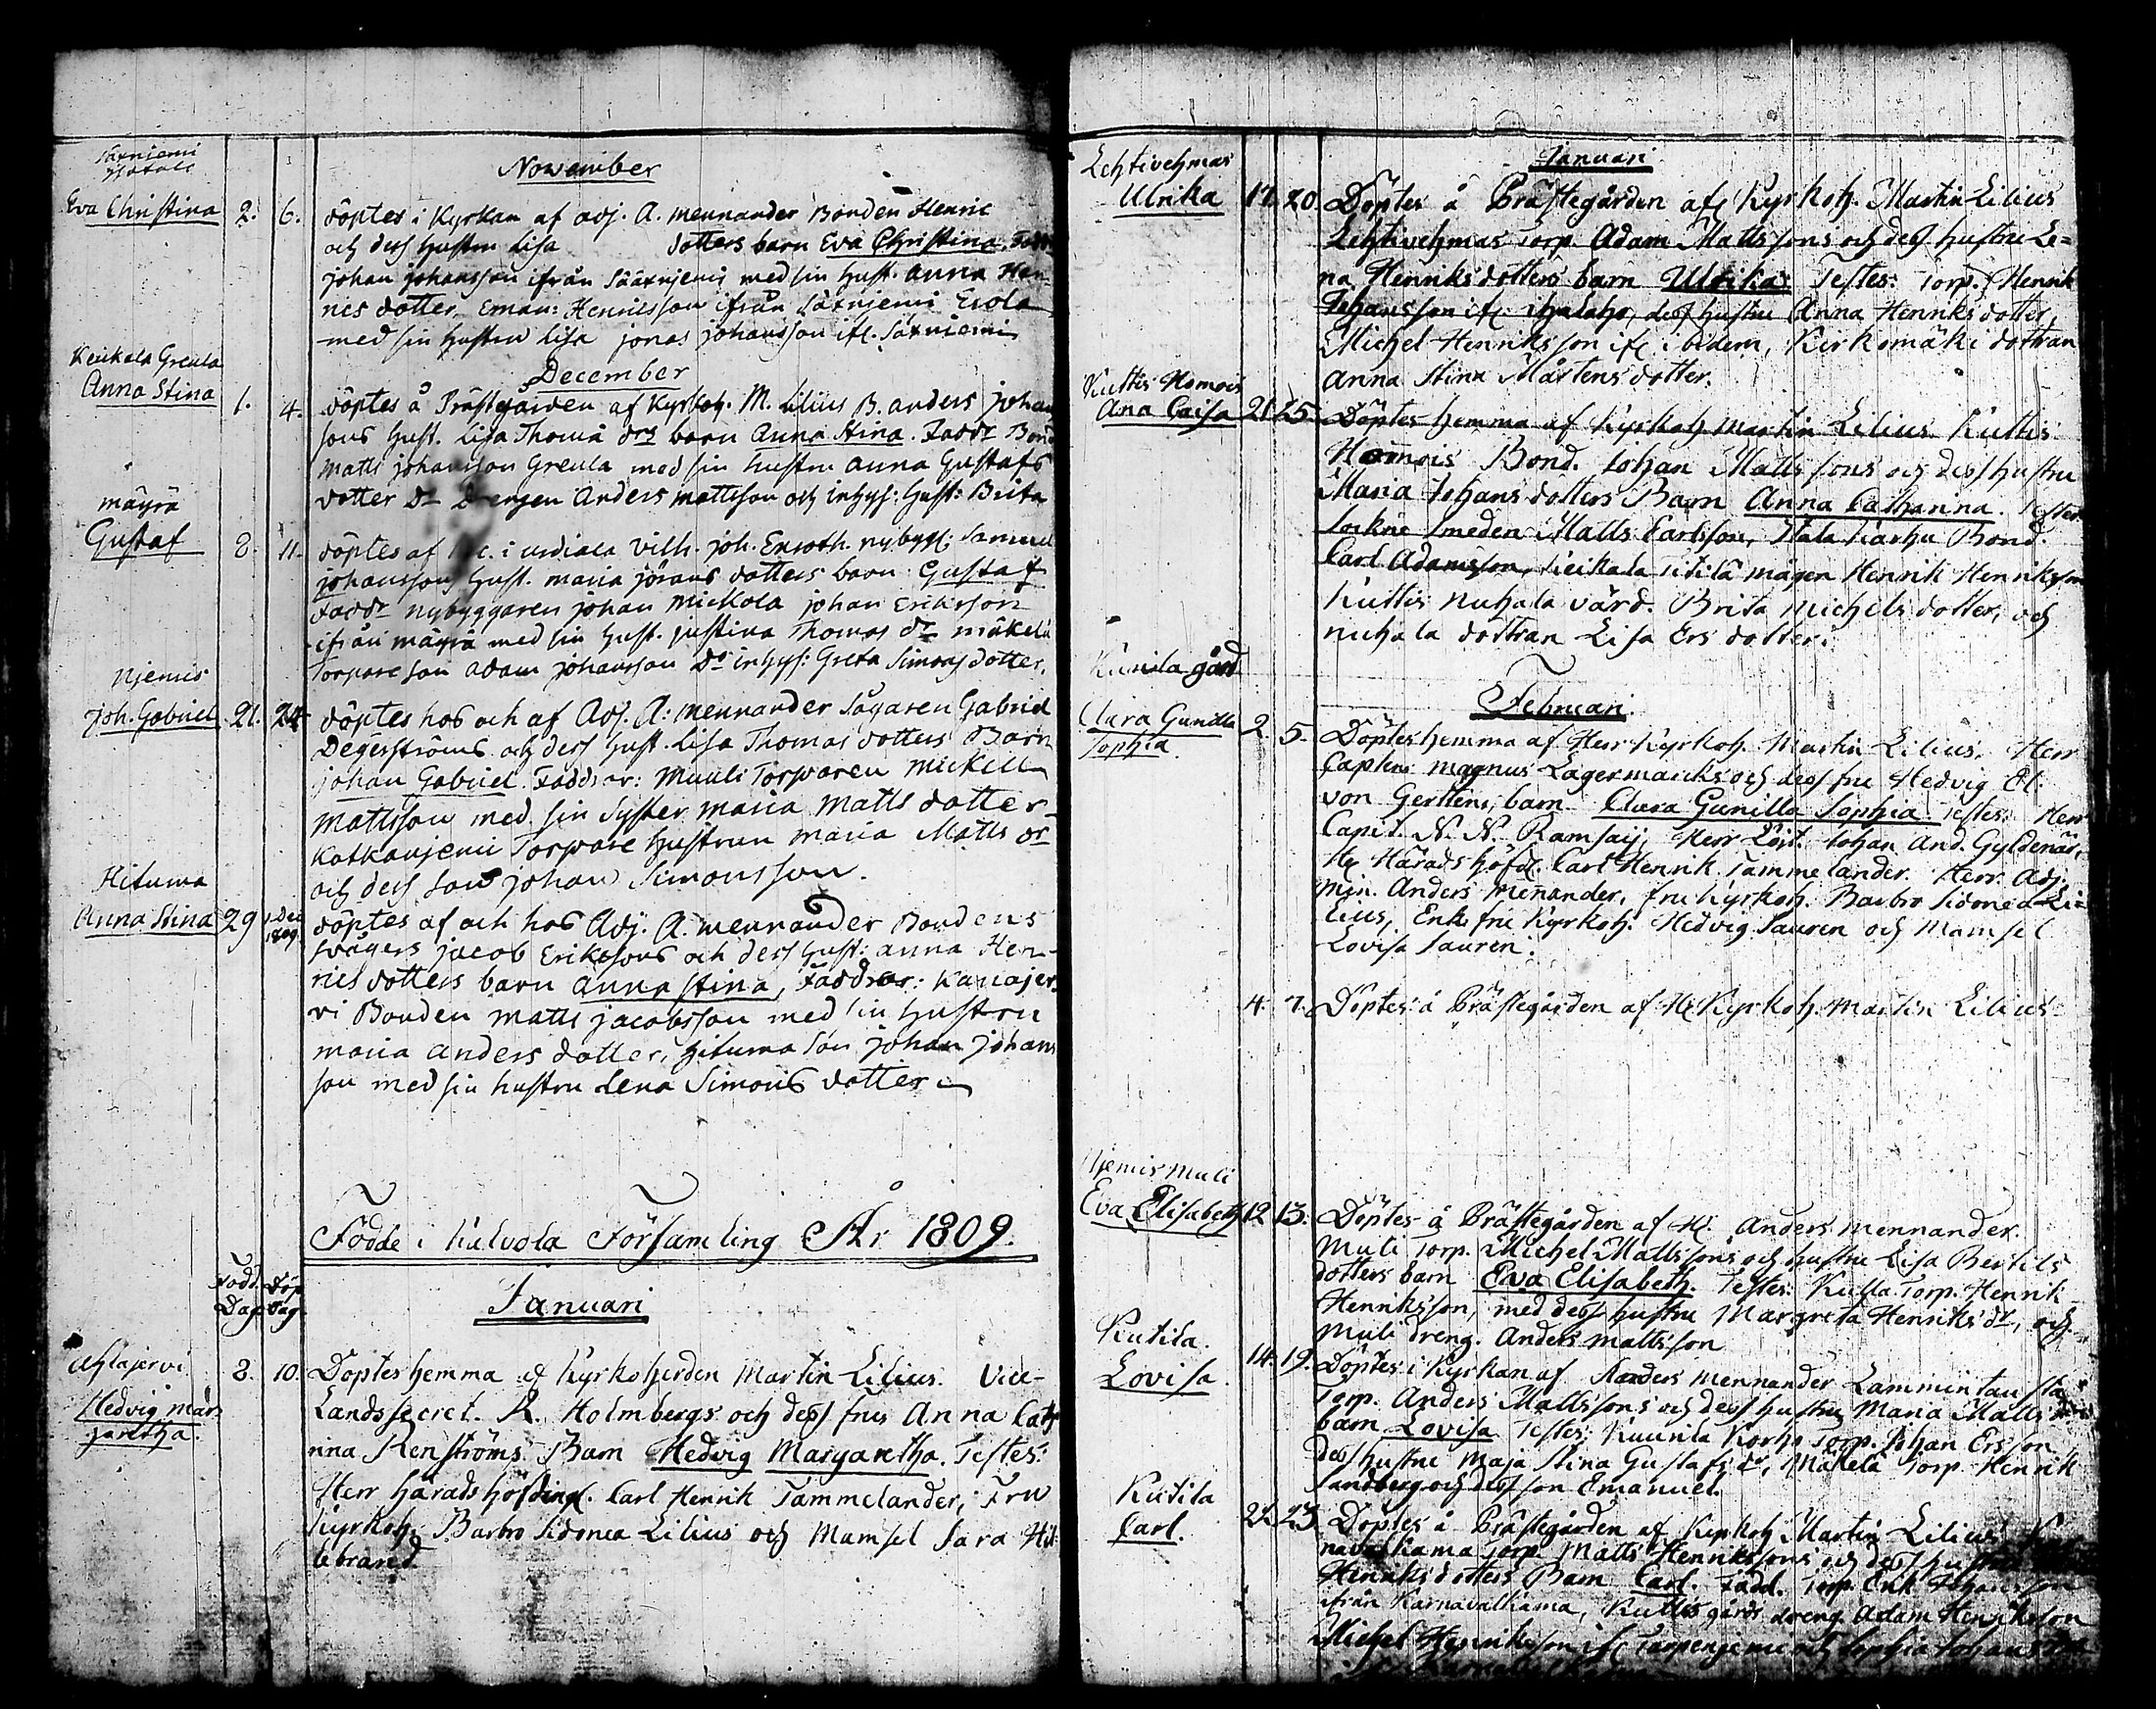 November
Eva Christina 2. 6. döptes i Kyrkan af adj. A. Mennander Bonden Henric
och dess hustru Lisa dotters barn Eva Christina. Fadd
johan johansson ifrån Säärnjemi med sin hust. Anna Hen-
rics dotter Eman: Henricsson ifrån Särnjemi Erola
med sin hustru Lisa jonas johansson ifr. Särniemi
Keikala Greula
December
Anna Stina 1. 4. döptes å Prästgården af Kyrkoh. M. Lilius B. anders johan
sons hust. Lisa Thomä drs barn Anna Stina. Faddr Bond
Matts johansson Greula med sin hustru anna Gustafs
dotter Dr Drengen Anders Mattsson och inhys: hust: Brita
Mäyrä
Gustaf 8. 11. döptes af i urdiala Vilh. joh. Enroth. nybygg: Samuel
johanssons hust. maria jörans dotters barn Gustaf
Faddr nybyggaren johan Mickola johan Ericksson
ifrån mäyrä med sin hust. justina Thomas dr mäkelä
Torpare son adam johansson Do inhys: Greta Simons dotter.
Njemis
Joh. Gabriel 21. 24. döptes hos och af Adj. A: Mennander Sågaren Gabriel
Degerströms och dess hust. Lisa Thomas dotters Barn
johan Gabriel. Faddrar: Muuli Torparen Mickell
Mattsson med sin Syster maria Matts dotter
Katkanjemi Torpare hustrun maria Matts dr
och dess son johan Simonsson.
Hituma
Anna Stina 29 1809. döptes af och hos Adj. A. Mennander Bondens
swägers jacob Erikssons och dess hust: anna Hen-
rics dotters barn Anna Stina, Faddrar: Kanajer-
vi Bonden matts jacobsson med sin hustru
maria anders dotter, hituma son johan johans
son med sin hustru Lena Simons dotter
Födde i Kalvola Församling År 1809.
Född. Döp
Dag. Dag.
Januari
Ahlajervi 8. 10. Döptes hemma af Kyrkoherden Martin Lilius. Vice-
Hedvig mar- Landssecret. R. Holmbergs och dess frus Anna Cath
garetha. rina Renströms Barn Hedvig Margaretha. Testes:
Herr häradshöfding. Carl Henrik Tammelander, Fru
Kyrkoh. Barbro Sidonea Lilius och Mamsel Sara Hil
lebrand.
Lehtivehmas
Januari
Ulrika 17. 20. Döptes å Prästegården af Kyrkoh. Martin Lilius
Lehtivehmas Torp. Adam Mattssons och dess hustru Le=
na Henriksdotters barn Ulrika. Testes: Torp. Henrik
Johansson ifr. dess hustru Anna Henriks dotter,
Michel Henriksson ifr. ibidem, Kerkomäki dottran
Anna Stina Mårtens dotter.
Kuttis Homois
Ana Caisa 21 25. Döptes hemma af Kyrkoh Martin Lilius Kuttis
Homois Bond. Johan Mattssons och dess hustru
Maria Johans dotters Barn Anna Catharina. Testes
Sockne smeden Matts Carlsson, Bond.
Carl Adamsson, Keikala mågen Henrik Henriksson
Kuttis Nuhala värd. Brita Michels dotter, och
Nuhala dottran Lisa Ers dotter.
Kunila gård
Februari.
Clara Gunilla 2. 5. Döptes hemma af Herr Kyrkoh. Martin Lilius. Herr
Sophia. Capten Magnus Lagermarcks och dess fru Hedvig El.
von Gertten, barn Clara Gunilla Sophia. Testes: Herr
Capit. N. N. Ramsaij, Herr Löjt. Johan And. Gyldenär,
Hr Härads höfd. Carl Henrik Tammelander. Herr Adj.
min. Anders Menander, fru Kyrkoh. Barbro Sidonea Li-
lius, Enk. fru Kyrkoh. Hedvig Sauren och Mamsel
Lovisa Sauren.
4. 7. Döptes å Prästegården af Hr Kyrkoh. Martin Lilius
Njemis Muli
Eva Elisabeth 12 13. Döptes å Prästegården af Hr. Anders Mennander.
Muli Torp. Michel Mattssons och hustru Lisa Bertils
dotters barn Eva Elisabeth. Testes: Kulla Torp. Henrik
Henriksson, med dess hustru Margreta Henriks dr, och
Muli dreng. Anders Mattsson
Kutila.
Lovisa. 14. 19. Döptes i Kyrkan af Anders Mennander Lammintausta
Torp. Anders Mattssons och dess hustru Maria Matts
barn Lovisa Testes: Kuunila Korho Torp. Johan Ersson,
dess hustru Maja Stina Gustafs dr, Mäkelä Torp. Henrik
Sandberg och dess son Emanuel
Kutila
Carl. 22. 23. Döptes å Prästegården af Kyrkoh Martin Lilius
Torp. Matts Henrikssons och dess hustru
Henriksdotters Barn Carl. Fadd. Torp. Erik Johansson
ifrån Karnavalkama, Kuttis gårds dreng. Adam Henriksson
Michel Henriksson ifr Tarpenjemi och Sophia Johans